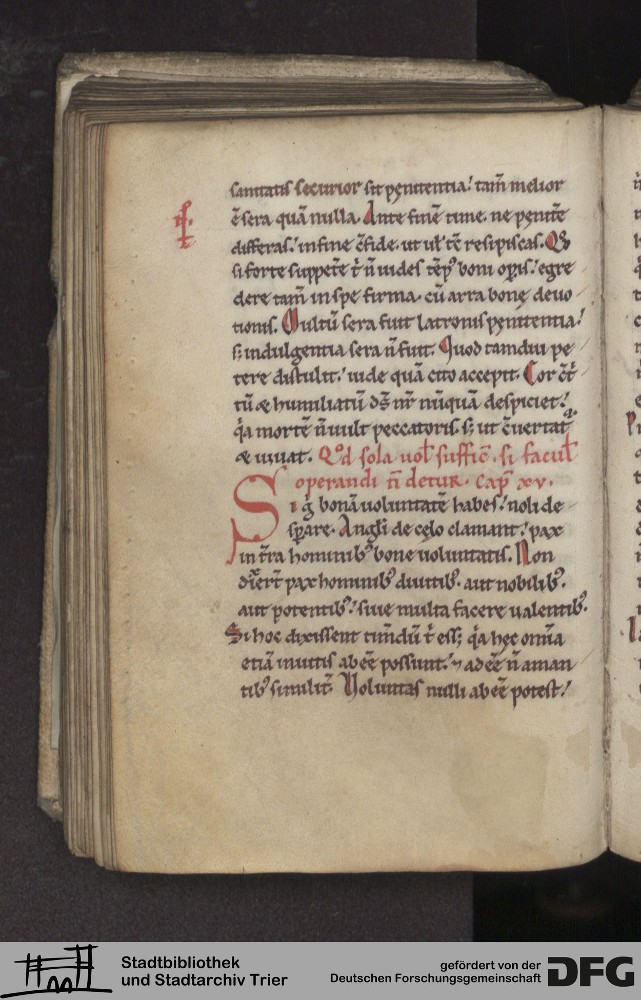 sanitatis securior sit penitentia.' tam̄ melior
ē sera quā nulla. Ante finē time. ne penitē
differas.' in fine c̄fide. ut ul' tc̄ resipiscas. Qđ
si forte suppetē t̄ n̄ uides tēp⁹ boni op̄is.' egre
dere tam̄ in spe firma. cū arra bonę deuo
tionis. Multū sera fuit latronis penitentia.'
s; indulgentia sera n̄ fuit. Quod tamdiu pe
tere distulit.' uide quā cito accepit. Cor c̄t̄
tū & humiliatū ds̄ nr̄ nūquā despiciet.'
q̄a mortē n̄ uult peccatoris. s; ut c̄uertat᷑
& uiuat. Qđ sola uol' suffic̄. si facul'
operandi n̄ detur. Cap̄ xv.
Si g̊ bonā uoluntatē habes.' noli de
sp̄are. Angl̄i de cęlo clamant.' pax
in t̄ra hominib⁹ bone uoluntatis. Non
dix̄erт̄ pax hominib⁹ diuitib⁹. aut nobilib⁹.
aut potentib⁹.' siue multa facere ualentib⁹.
Si hoc dixissent tim̄dū t̄ ess; q̄a hęc om̄ia
etiā inuitis abēē possunt.' ⁊ adēē n̄ aman
tib⁹ similit̄. Voluntas nulli abēē potest.'
Stadtbibliothek
und Stadtarchiv Trier
gefördert von der
Deutschen Forschungsgemeinschaft
DFG